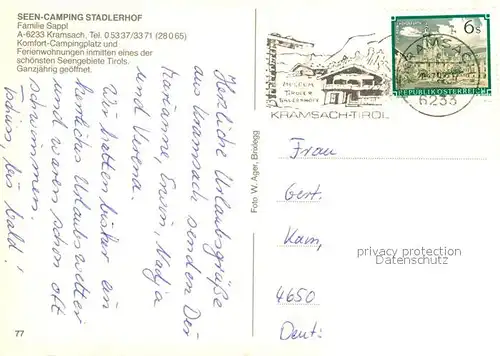 SEEN-CAMPING STADLERHOF
Familie Sappl
A-6233 Kramsach, Tel. 0 53 37/33 71 (280 65)
Komfort-Campingplatz und
Ferienwohnungen inmitten eines der
schönsten Seengebiete Tirols.
Ganzjährig geöffnet.
Herzliche Urlaubsgrüße
aus Kramsach senden Dir
Marianne, Erwin, Nadja
und Verena.
Wir hatten bisher ein
herrliches Urlaubswetter
und waren schon oft
schwimmen.
Tschüss, bis bald!
77
Foto W. Ager, Brixlegg
MUSEUM
TIROLER
BAUERNHÖFE
KRAMSACH-TIROL
6233
6s
REPUBLIK ÖSTERREICH
Frau
Gert.
4650
privacy protection
Datenschutz